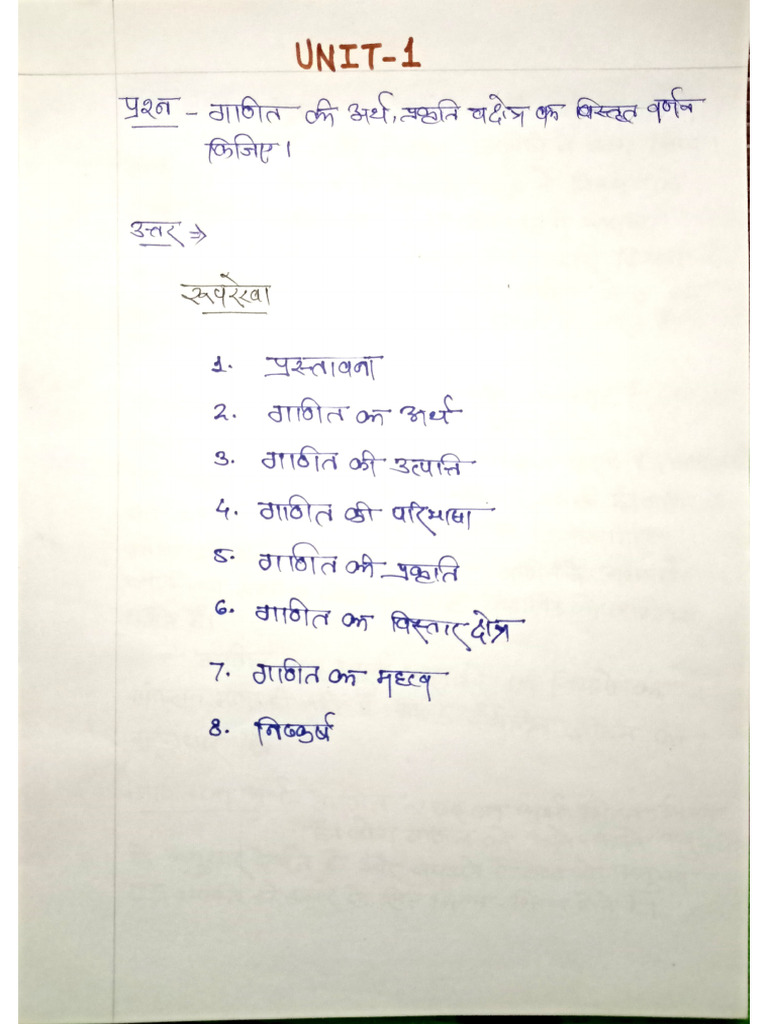 UNIT-1
प्रश्न - गणित की अर्थ, प्रकृति व क्षेत्र का विस्तृत वर्णन
किजिए।
उत्तर ⇒
रूपरेखा
1. प्रस्तावना
2. गणित का अर्थ
3. गणित की उत्पत्ति
4. गणित की परिभाषा
5. गणित की प्रकृति
6. गणित का विस्तार क्षेत्र
7. गणित का महत्व
8. निष्कर्ष